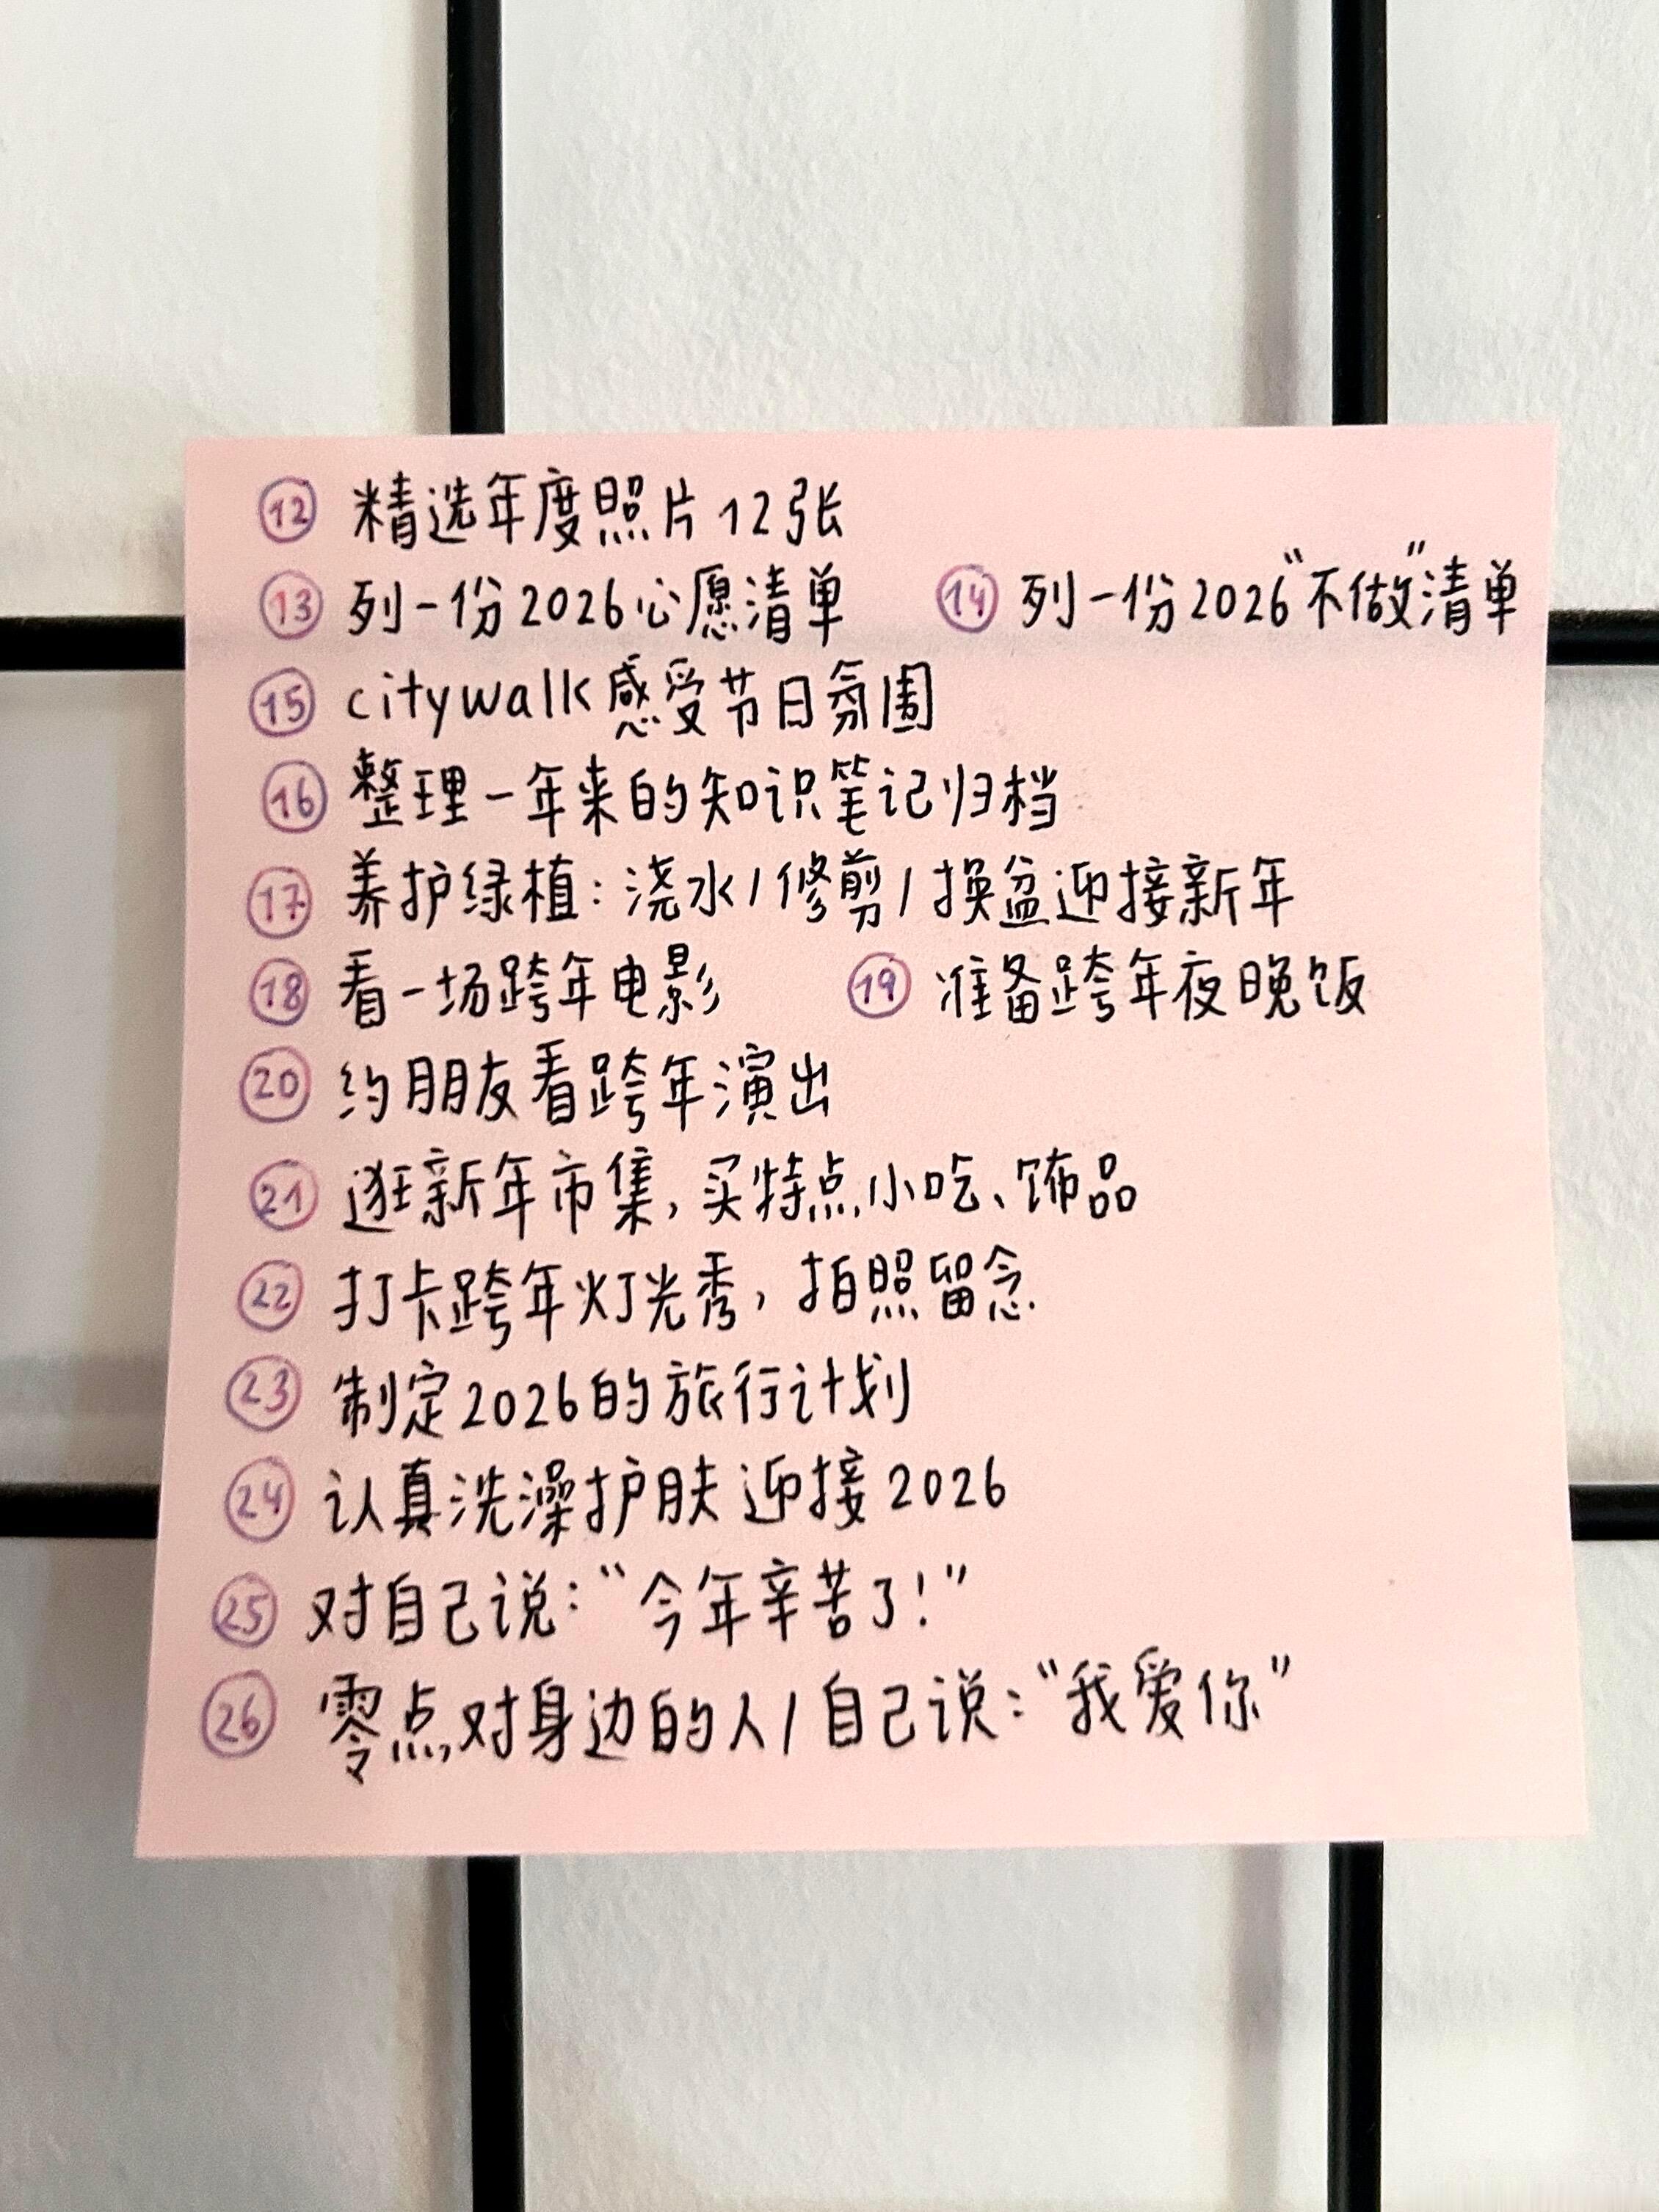 ⑫ 精选年度照片12张
⑬ 列一份2026心愿清单 ⑭ 列一份2026“不做”清单
⑮ citywalk感受节日氛围
⑯ 整理一年来的知识笔记归档
⑰ 养护绿植：浇水/修剪/换盆迎接新年
⑱ 看一场跨年电影 ⑲ 准备跨年夜晚饭
⑳ 约朋友看跨年演出
㉑ 逛新年市集，买特点小吃、饰品
㉒ 打卡跨年灯光秀，拍照留念
㉓ 制定2026的旅行计划
㉔ 认真洗澡护肤迎接2026
㉕ 对自己说：“今年辛苦了！”
㉖ 零点对身边的人/自己说：“我爱你”